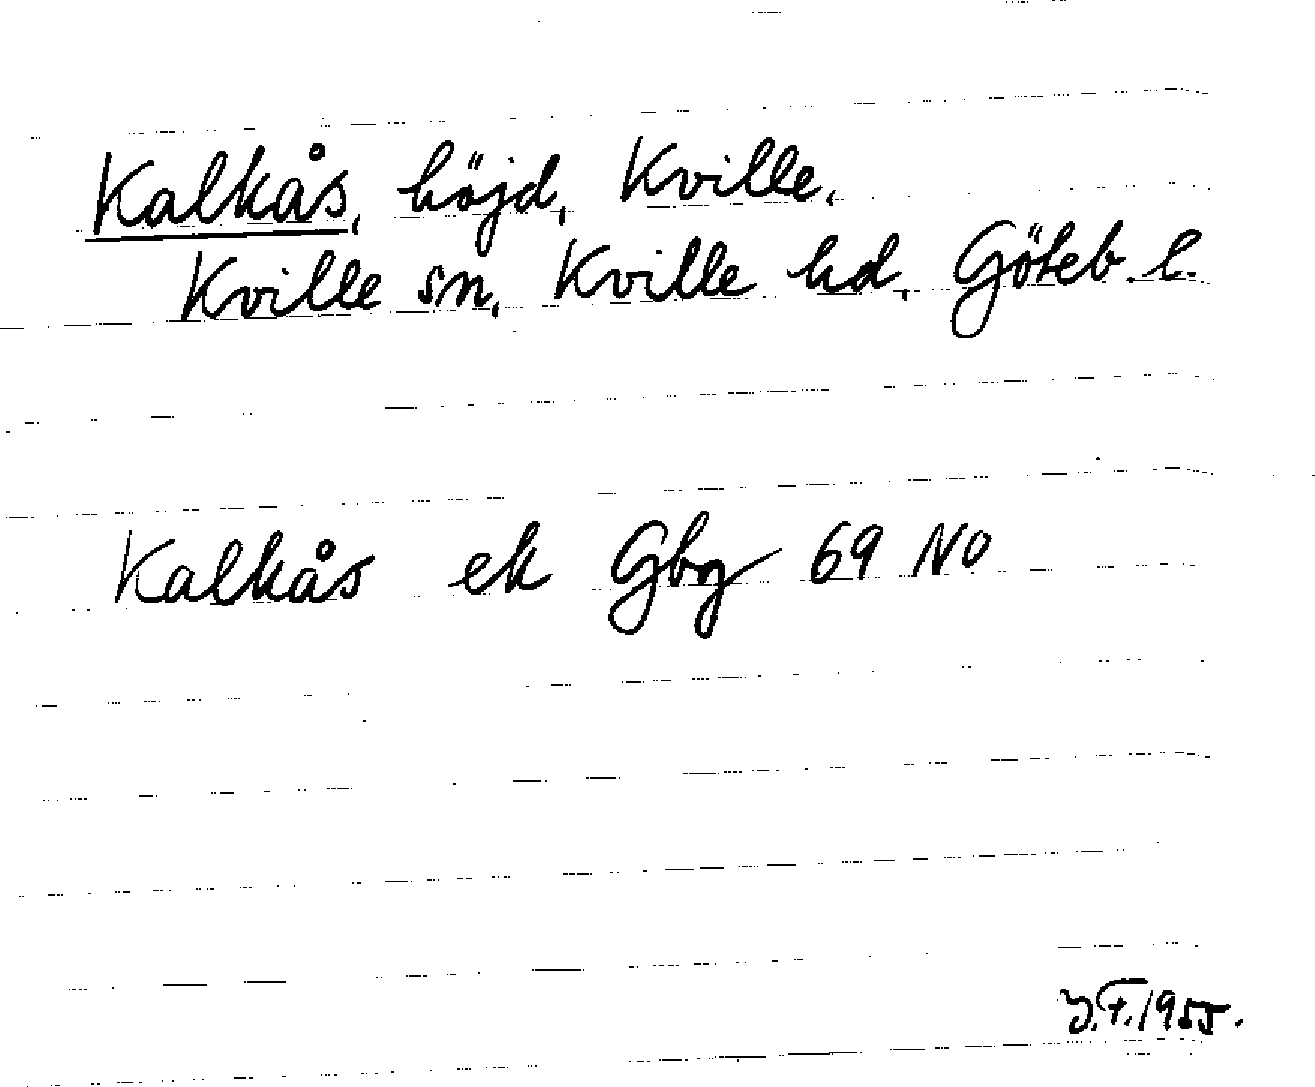 Kalkås, höjd, Kville,
Kville sn, Kville hd, Göteb. l.
Kalkås ek Gbg 69 NO
Y.F. 1955.